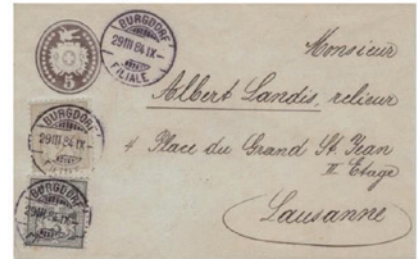 5
BURGDORF
29 III 84 IX-
FILIALE
Monsieur
Albert Landis, relieur
4 Place du Grand St. Jean
II. Etage
Lausanne
BURGDORF
29 III 84 IX-
BURGDORF
29 III 84 IX-